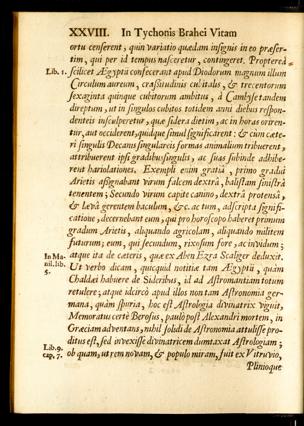 XXVIII. In Tychonis Brahei Vitam
ortu censerent, quin variatio quædam insignis in eo præser-
tim, qui per id tempus nasceretur, contingeret. Propterea
Lib. 1. scilicet Ægyptii consecerant apud Diodorum magnum illum
Circulum aureum, crassitudinis cubitalis, & trecentorum
sexaginta quinque cubitorum ambitus, à Cambyse tandem
direptum, ut in singulos cubitos totidem anni diebus respon-
denteis insculperetur, quæ sidera dietim, ac in horas oriren-
tur, aut occiderent, quidque simul significarent: & cùm cæte-
ri singulis Decanis singulareis formas animalium tribuerent,
attribuerent ipsi gradibus singulis, ac suas subinde adhibe-
rent hariolationes. Exempli enim gratiâ, primo gradui
Arietis assignabant virum falcem dextrâ, balistam sinistrâ
tenentem; Secundo virum capite canino, dextrâ protensâ,
& lævâ gerentem baculum, &c. ac tum, adscriptâ signifi-
catione, decernebant eum, qui pro horoscopo haberet primum
gradum Arietis, aliquando agricolam, aliquando militem
futurum; eum, qui secundum, rixosum fore, ac invidum;
In Ma- atque ita de cæteris, quæ ex Aben Ezra Scaliger deduxit.
nil. lib. Ut verbo dicam, quicquid notitiæ tam Ægyptii, quàm
5. Chaldæi habuere de Sideribus, id ad Astromantiam totum
retulere; atque idcircò apud illos non tam Astronomia ger-
mana, quàm spuria, hoc est Astrologia divinatrix viguit.
Memoratus certè Berosus, paulò post Alexandri mortem, in
Græciam adventans, nihil solidi de Astronomia attulisse pro-
ditus est, sed invexisse divinatricem dumtaxat Astrologiam;
Lib. 9. ob quam, ut rem novam, & populo miram, fuit ex Vitruvio,
cap. 7. Plinioque